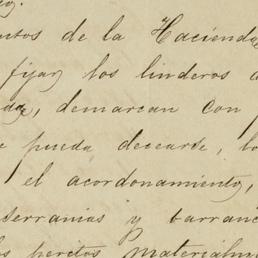 ntos de la Hacienda
fijar los linderos d
, demarcan con p
e pueda decearse, lo
el acordonamiento,
serranias y barran
os peritos materialm